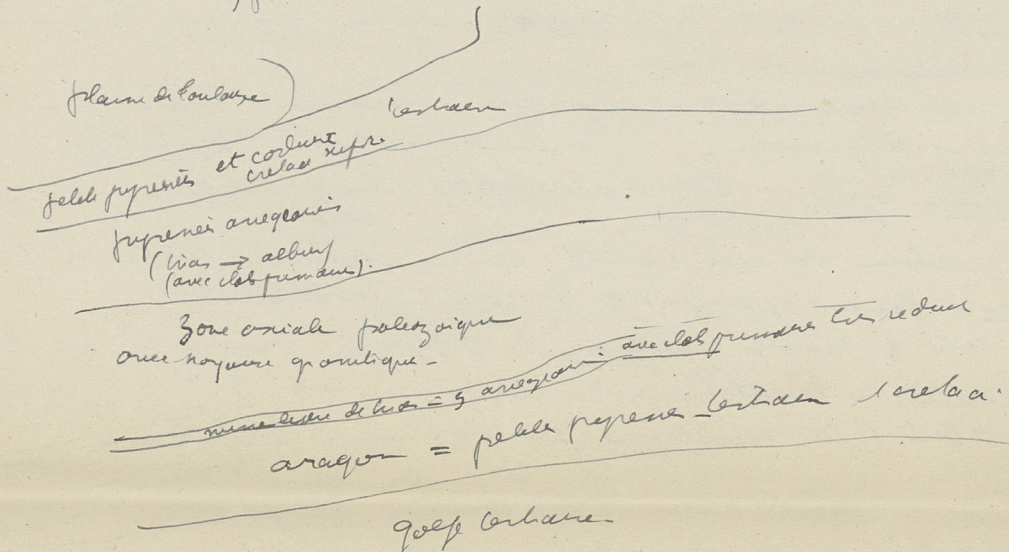 plaine de Toulouse
tertiaire
petites pyrénées et corbières
crétacé supr.
pyrénées ariégeoises
(lias → albien)
(avec îlots primaires).
Zone axiale paléozoique
avec noyaux granitique -
mince de lias = z ariégeoise: avec îlots primaires très réduits
aragon = petites pyrénées - tertiaire / crétacé.
golfe tertiaire